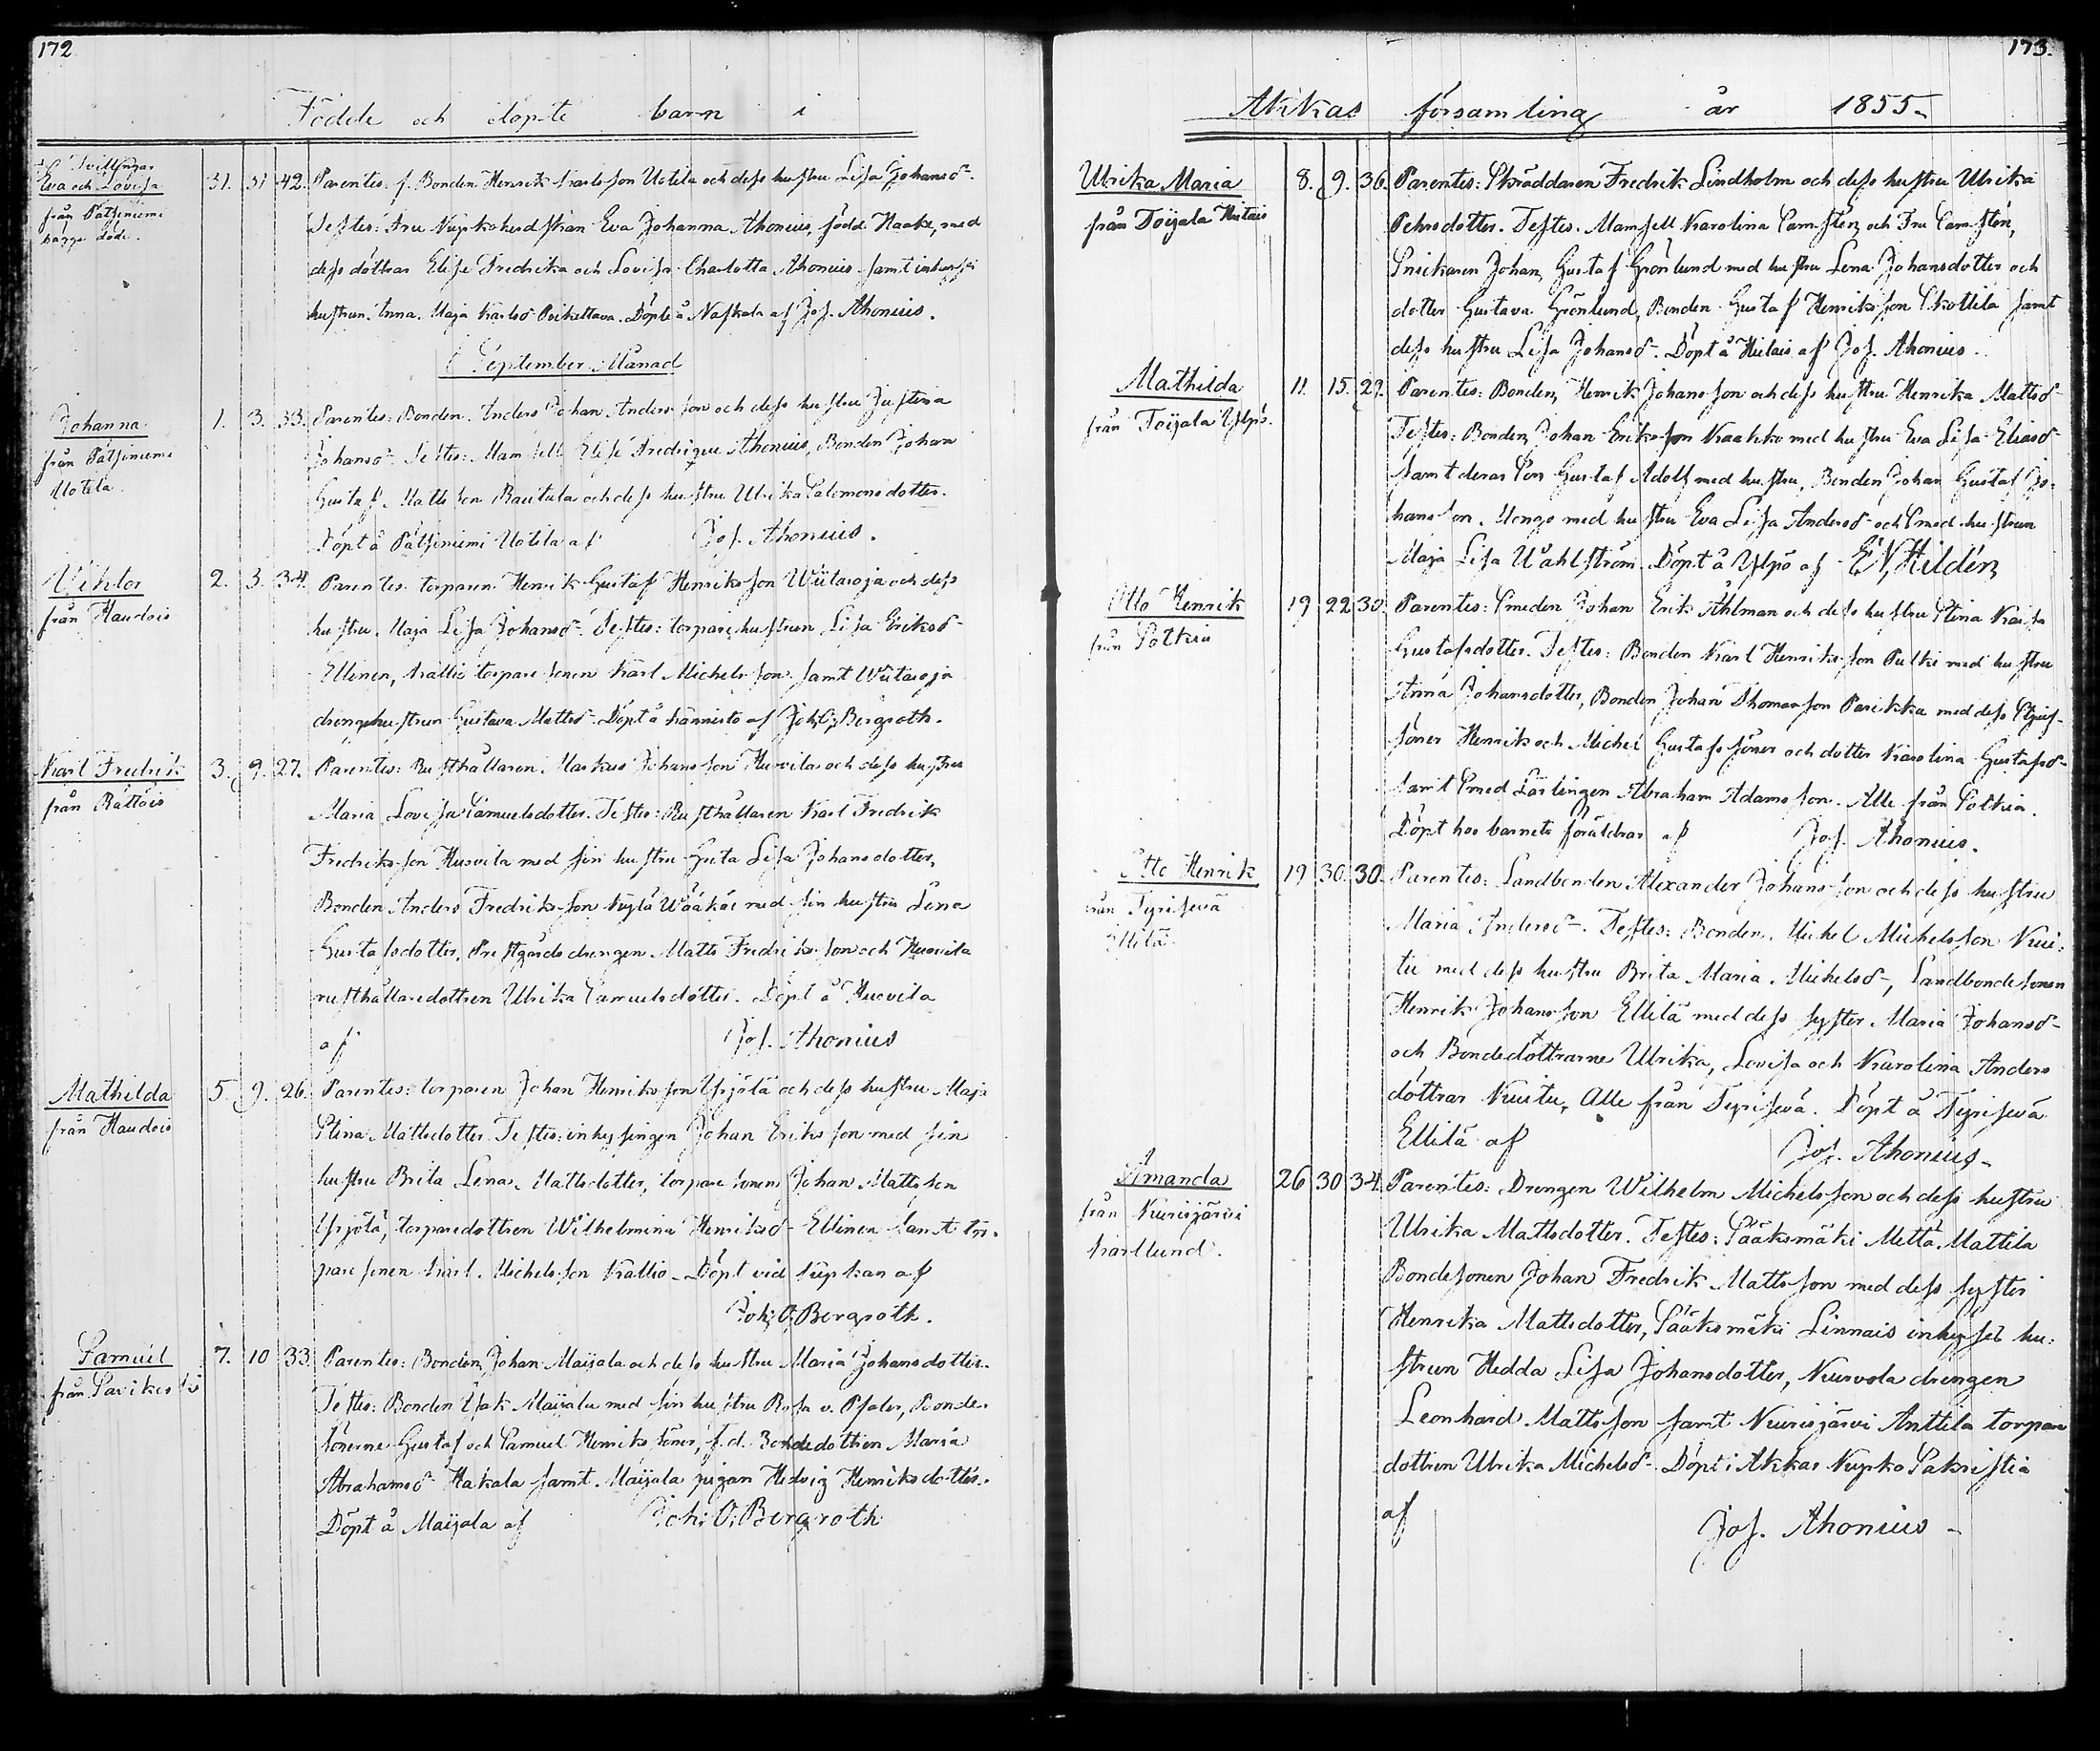 172
Födde och döpte barn i
Tvillingar
Eva och Lovisa
från Pätsiniemi
bägge döde.
31. 31 42. Parentes: f. Bonden Henrik Karlsson Uotila och dess hustru Lisa Johansdr
Testes: Fru Kyrkoherdskan Eva Johanna Ahonius, född Haake, med
dess döttrar Elise Fredrika och Lovisa Charlotta Ahonius samt inhyses
hustrun Anna Maja Karlsdr Poikettava. Döpte å Naskala af Jos. Ahonius.
September Månad
Johanna
från Pätsiniemi
Uotila
1. 3. 33. Parentes: Bonden Anders Johan Andersson och dess hustru Justina
Johansdr Testes: Mamsell Elise Fredrique Ahonius, Bonden Johan
Gustaf Mattsson Rautala och dess hustru Ulrika Salomonsdotter.
Döpt å Pätsiniemi Uotila af Jos. Ahonius.
Viktor
från Haudois
2. 3. 34. Parentes: torparen Henrik Gustaf Henriksson Wiitaroja och dess
hustru Maja Lisa Johansdr Testes: torparehustrun Lisa Eriksdr
Ellinen, Kallio torparesonen Karl Michelsson samt Wiitaroja
drengehustrun Gustava Mattsdr Döpt å Kännistö af Joh: O: Bergroth.
Karl Fredrik
från Rättöis
3. 9. 27. Parentes: Rusthållaren Markus Johansson Huovila och dess hustru
Maria Lovisa Samuelsdotter. Testes: Rusthållaren Karl Fredrik
Fredriksson Husvila med sin hustru Greta Lisa Johansdotter,
Bonden Anders Fredriksson Kylä Wääkäi med sin hustru Lena
Gustafsdotter, Prestgårdsdrengen Matts Fredriksson och Huovila
rusthållaredottren Ulrika Samuelsdotter. Döpt å Huovila
af Jos. Ahonius
Mathilda
från Haudois
5. 9. 26. Parentes: torparen Johan Henriksson Yrjölä och dess hustru Maja
Stina Mattsdotter. Testes: inhysingen Johan Eriksson med sin
hustru Brita Lena Mattsdotter, torparesonen Johan Mattsson
Yrjölä, torparedottren Wilhelmina Henriksdr Ellinen samt tor-
paresonen Karl Michelsson Kallio. Döpt vid kyrkan af
Joh: O: Bergroth.
Samuel
från Savikoski
7. 10 33. Parentes: Bonden Johan Maijala och dess hustru Maria Johansdotter.
Testes: Bonden Isak Maijala med sin hustru Rosa v. Pfaler, Bonde-
sönerne Gustaf och Samuel Henriks söner, f.d. Bondedottren Maria
Abrahamsdr Hakala samt Maijala pigan Hedvig Henriksdotter.
Döpt å Maijala af Joh: O: Bergroth
173.
Akkas församling år 1855.
Ulrika Maria
från Toijala Hutais
8. 9. 36. Parentes: Skräddaren Fredrik Lindholm och dess hustru Ulrika
Pehrsdotter. Testes: Mamsell Karolina Camstén och Fru Camstén,
Snickaren Johan Gustaf Grönlund med hustru Lena Johansdotter och
dotter Gustava Grönlund, Bonden Gustaf Henriksson Skottila samt
dess hustru Lisa Johansdr. Döpt å Hutais af Jos. Ahonius.
Mathilda
från Toijala Ylpö.
11. 15. 27. Parentes: Bonden Henrik Johansson och dess hustru Henrika Mattsdr
Testes: Bonden Johan Eriksson Kaakko med hustru Eva Lisa Eliasdr
samt deras Son Gustaf Adolf med hustru, Bonden Johan Gustaf Jo-
hansson Mongo med hustru Eva Lisa Andersdr och Smedhustrun
Maja Lisa Wåhlström. Döpt å Ylpö af E. V. Hildén
Otto Henrik
från Sotkia
19 22 30. Parentes: Smeden Johan Erik Åhlman och dess hustru Stina Kaisa
Gustafsdotter. Testes: Bonden Karl Henriksson Pulki med hustru
Anna Johansdotter, Bonden Johan Thomasson Parikka med dess Styf-
söner Henrik och Michel Gustafs söner och dotter Karolina Gustafsdr
samt Smed Lärlingen Abraham Adamsson. Alle från Sotkia.
Döpt hos barnets föräldrar af Jos. Ahonius.
Otto Henrik
från Tyrisevä
Ellilä
19 30. 30. Parentes: Landbonden Alexander Johansson och dess hustru
Maria Andersdr. Testes: Bonden Michel Michelsson Kui-
tu med dess hustru Brita Maria Michelsdr, Landbondesonen
Henrik Johansson Ellilä med dess syster Maria Johansdr
och Bondedöttrarne Ulrika, Lovisa och Karolina Anders
döttrar Kuitu, Alle från Tyrisevä. Döpt å Tyrisevä
Ellilä af Jos. Ahonius.
Amanda
från Kurisjärvi
Karllund.
26 30 34. Parentes: Drengen Wilhelm Michelsson och dess hustru
Ulrika Mattsdotter. Testes: Sääksmäki Mettä Mattila
Bondesonen Johan Fredrik Mattsson med dess syster
Henrika Mattsdotter, Sääksmäki Linnais inhyses hu-
strun Hedda Lisa Johansdotter, Kurvola drengen
Leonhard Mattsson samt Kurisjärvi Anttila torpare
dottren Ulrika Michelsdr. Döpt i Akkas Kyrko Sakristia
af Jos. Ahonius